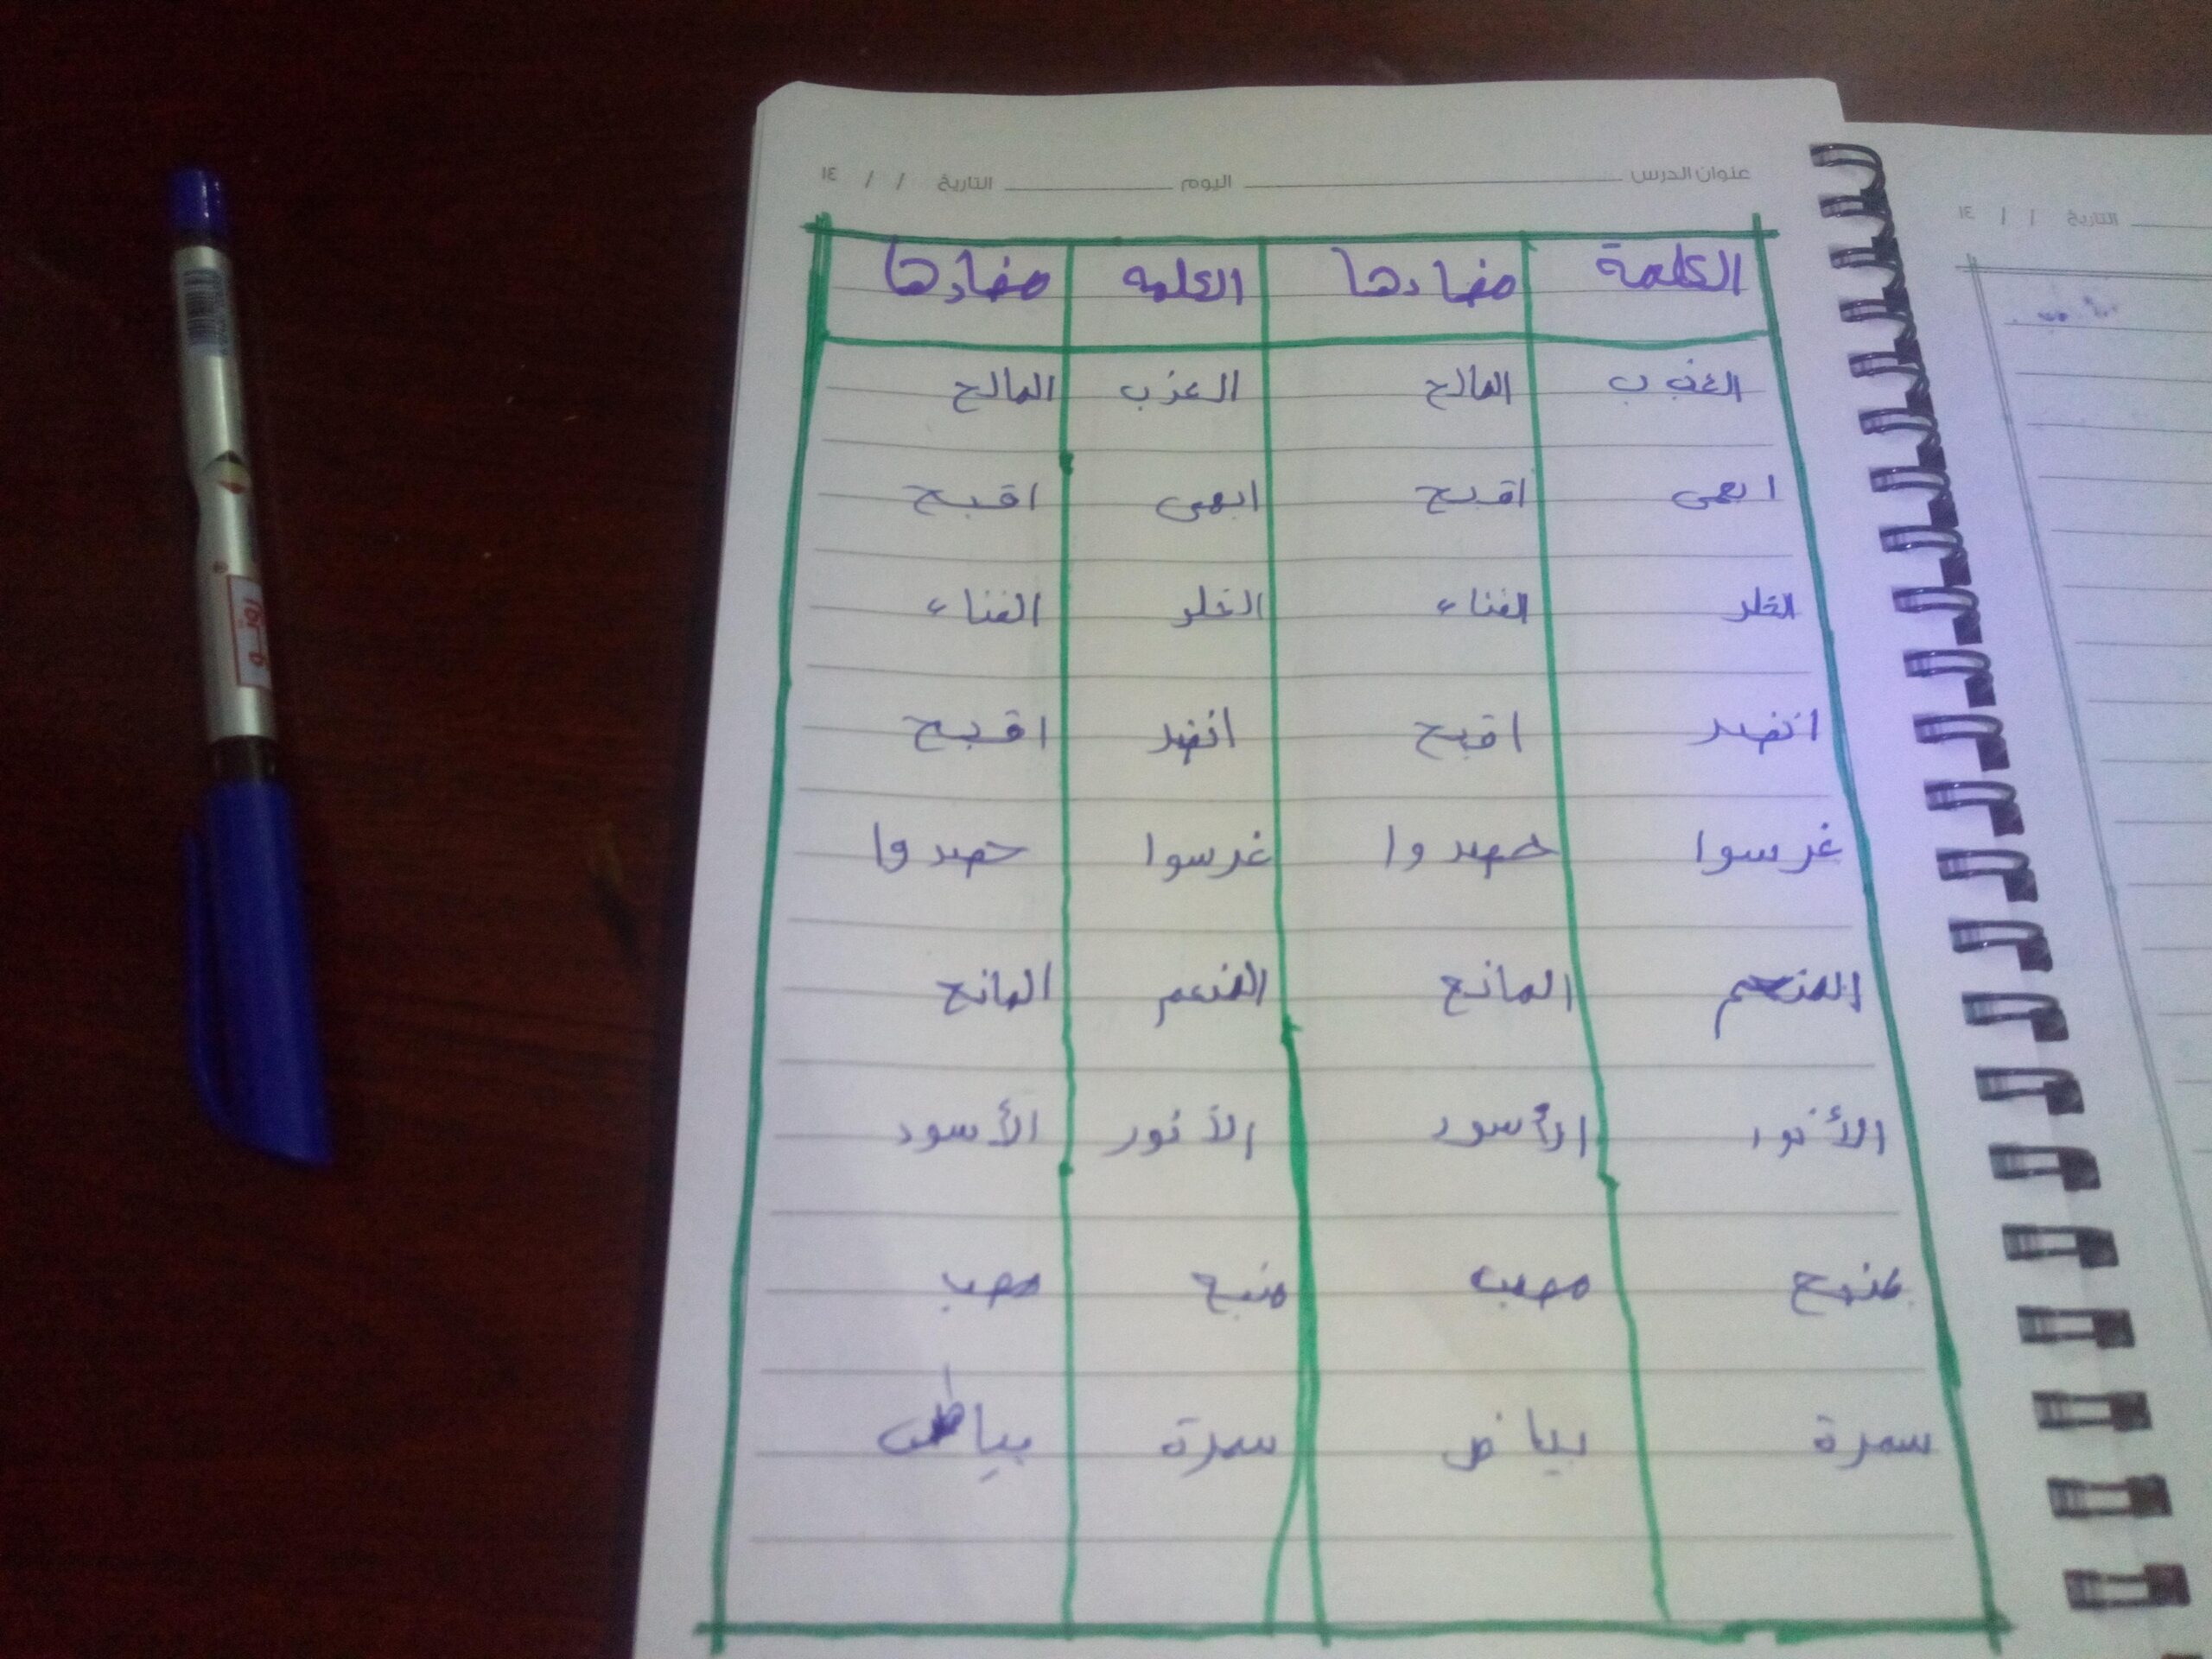 عنوان الدرس اليوم التاريخ / / ١٤
الكلمة مضادها الكلمه مضادها
العذب المالح العزب المالح
ابهى اقبح ابهى اقبح
الخلد الفناء الخلو الفناء
انضد اقبح انضد اقبح
غرسوا حصدوا غرسوا حصدوا
المنعم المانع المنعم المانح
الأنور الأسود الأنور الأسود
منبع مصب منبع مصب
سمرة بياض سمرة بياض
التاريخ / / ١٤
روتو